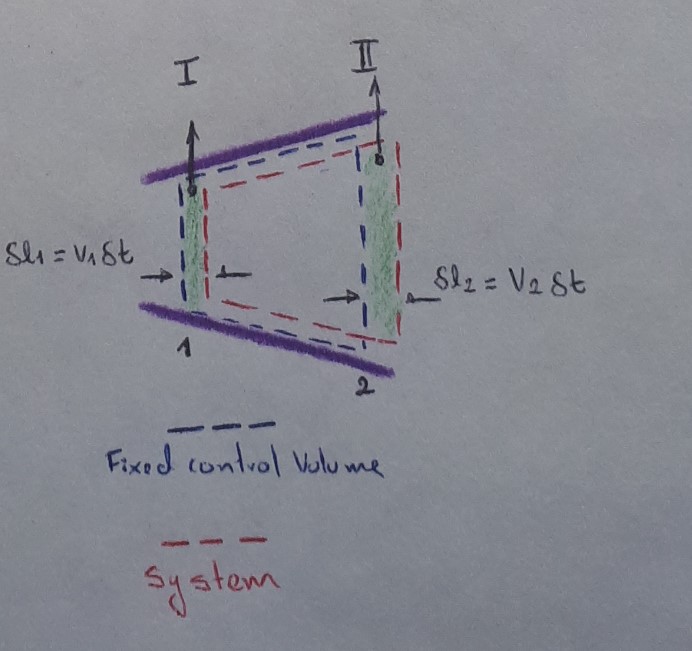 I
II
δl1 = V1 δt
δl2 = V2 δt
1
2
Fixed control Volume
System